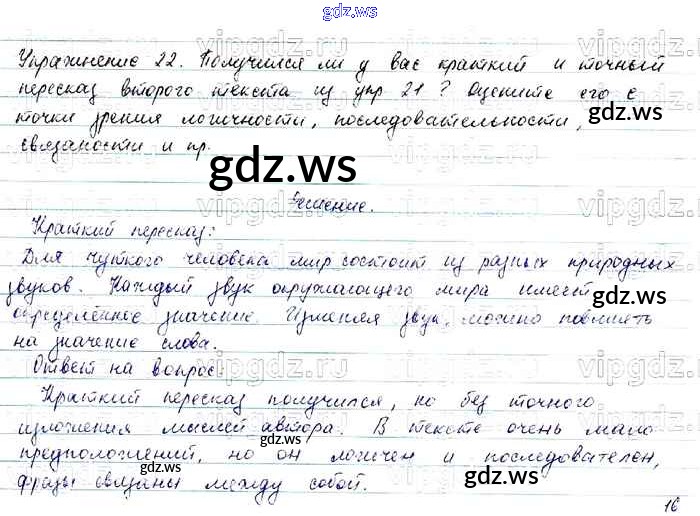 gdz.ws
Упражнение 22. Получился ли у вас краткий и точный
пересказ второго текста из упр 21? Оцените его с
точки зрения логичности, последовательности,
связаности и пр.
gdz.ws
Решение.
Краткий пересказ:
Для чуткого человека мир состоит из разных природных
звуков. Каждый звук окружающего мира имеет
gdz.ws
определённое значение. Изменяя звук, можно повлиять
на значение слова.
Ответ на вопрос:
Краткий пересказ получился, но без точного
gdz.ws
изложения мыслей автора. В тексте очень мало
gdz.ws
предположений, но он логичен и последователен,
фразы связаны между собой.
gdz.ws
16